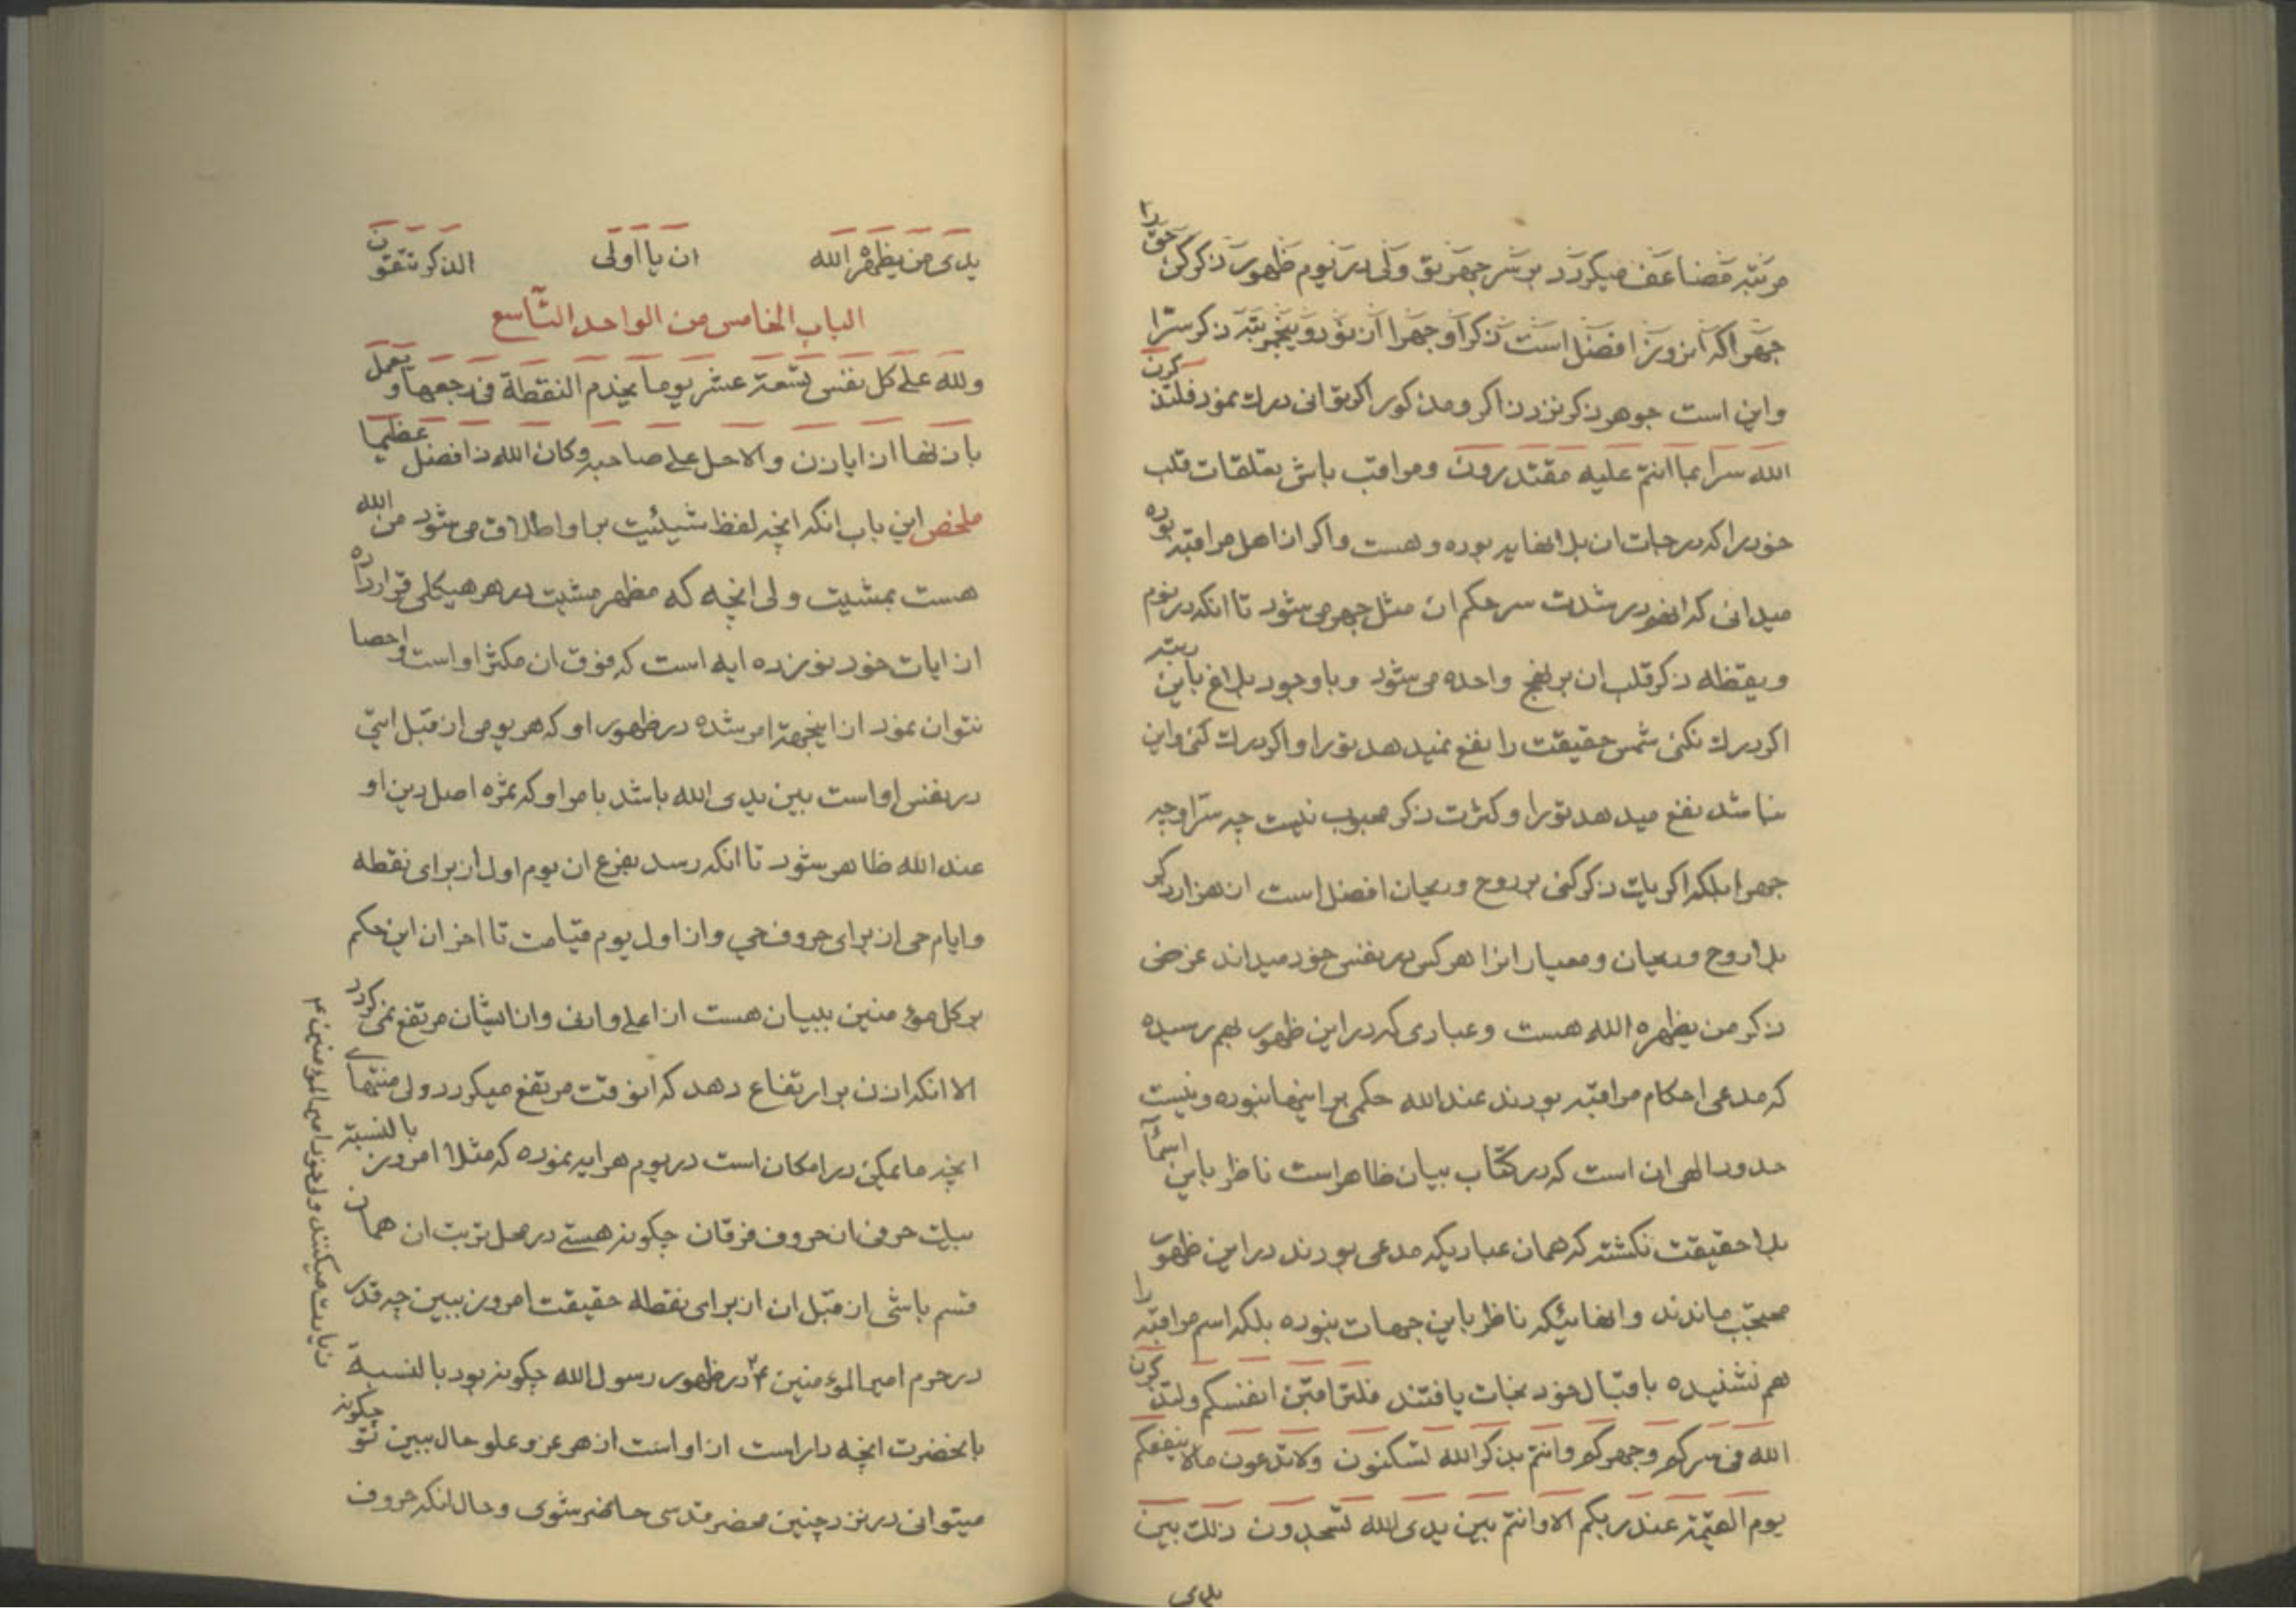 مرتبه مضاعف میکردد بر سر جهر تو ولی در یوم ظهور ذکر کن حق را
جهرا که انروز افضل است ذکر او جهرا از نوزده پنجمرتبه ذکر سرّا
و این است جوهر ذکر نزد ذاکر و مذکور اکر توانی درک نمود فلتذکرن
الله سرا بما انتم علیه مقتدرون و مراقب باش بتعلقات قلب
خود را که درجات ان بلا نهایه بوده و هست و اکر از اهل مراقبه بوده
میدانی که انقدر شدت سر حکم ان مثل جهر می شود تا انکه در نوم
و یقظه ذکر قلب ان بر نهج واحده می شود و با وجود بلاغ باین رتبه
اکر درک نکنی شمس حقیقت را نفع نمیدهد تو را و اکر درک کنی و این
نباشد نفع میدهد تو را و کثرت ذکر محبوب نیست چه سرّا و چه
جهرا بلکه اکر یک ذکر کنی بر روح و ریحان افضل است از هزار ذکر
بلا روح و ریحان و معیار انرا هر کس در نفس خود میداند غرض
ذکر من یظهره الله هست و عبادی که در این ظهور بهم رسیده
که مدعی احکام مراقبه بودند عند الله حکمی بر اینها نبوده و نیست
حدود الهی ان است که در کتاب بیان ظاهر است ناظر باین اسمآ
بلا حقیقت نکشته که همان عبادیکه مدعی بودند در این ظهور
محتجب ماندند و انهائیکه ناظر باین جهات نبوده بلکه اسم مراقبه را
هم نشنیده باقبال خود نجات یافتند فلتراقبن انفسکم ولتذکرن
الله فی سرکم و جهرکم و انتم بذکر الله تسکنون ولا تدعون ما لا ینفعکم
یوم القیمة عند ربکم الا و انتم بین یدی الله تسجدون ذلک بین
یدی
یدی من یظهره الله ان یا اولی الذکر تتقون
الباب الخامس من الواحد التّاسع
ولله علی کل نفس تسعة عشر یوما یخدم النقطة فی رجعها و یعمل
باذنها ان اياذن والا حل علی صاحبه و کان الله ذا فضل عظیما
ملخص این باب انکه انچه لفظ شیئیت بر او اطلاق می شود من الله
هست بمشیت ولی انچه که مظهر مشیت در هر هیکلی قرار داده
از ایات خود نوزده ایه است که فوق ان مکثر او است و احصا
نتوان نمود از اینجهة امر شده در ظهور او که هر یومی از قبل ایتی
در نفس او است بین یدی الله باشد بامر او که ثمره اصل دین او
عند الله ظاهر شود تا انکه رسد بفرع ان یوم اول از برای نقطه
و ایام حی از برای حروف حی و از اول یوم قیامت تا اخر ان این حکم
بر کل مؤمنین ببیان هست از اعلی و ادنی و از ایشان مرتفع نمی کردد
الا انکه اذن بر ارتفاع دهد که انوقت مرتفع میکردد ولی منتهای
انچه ما یمکن در امکان است در یوم هر ایه نموده که مثلا امروز بالنسبة
بیک حرفی از حروف فرقان چکونه هستی در محل تربت ان همان
قسم باشی از قبل ان از برای نقطه حقیقت امروز ببین چه قدر
در حرم امیر المؤمنین ۴ در ظهور رسول الله چکونه بود بالنسبة
بانحضرت انچه دارا است از او است از هر عز و علو حال ببین تو چکونه
میتوانی در نزد چنین محضر قدسی حاضر شوی و حال انکه حروف
زیارت میکنند ولی خود امیر المؤمنین ۴